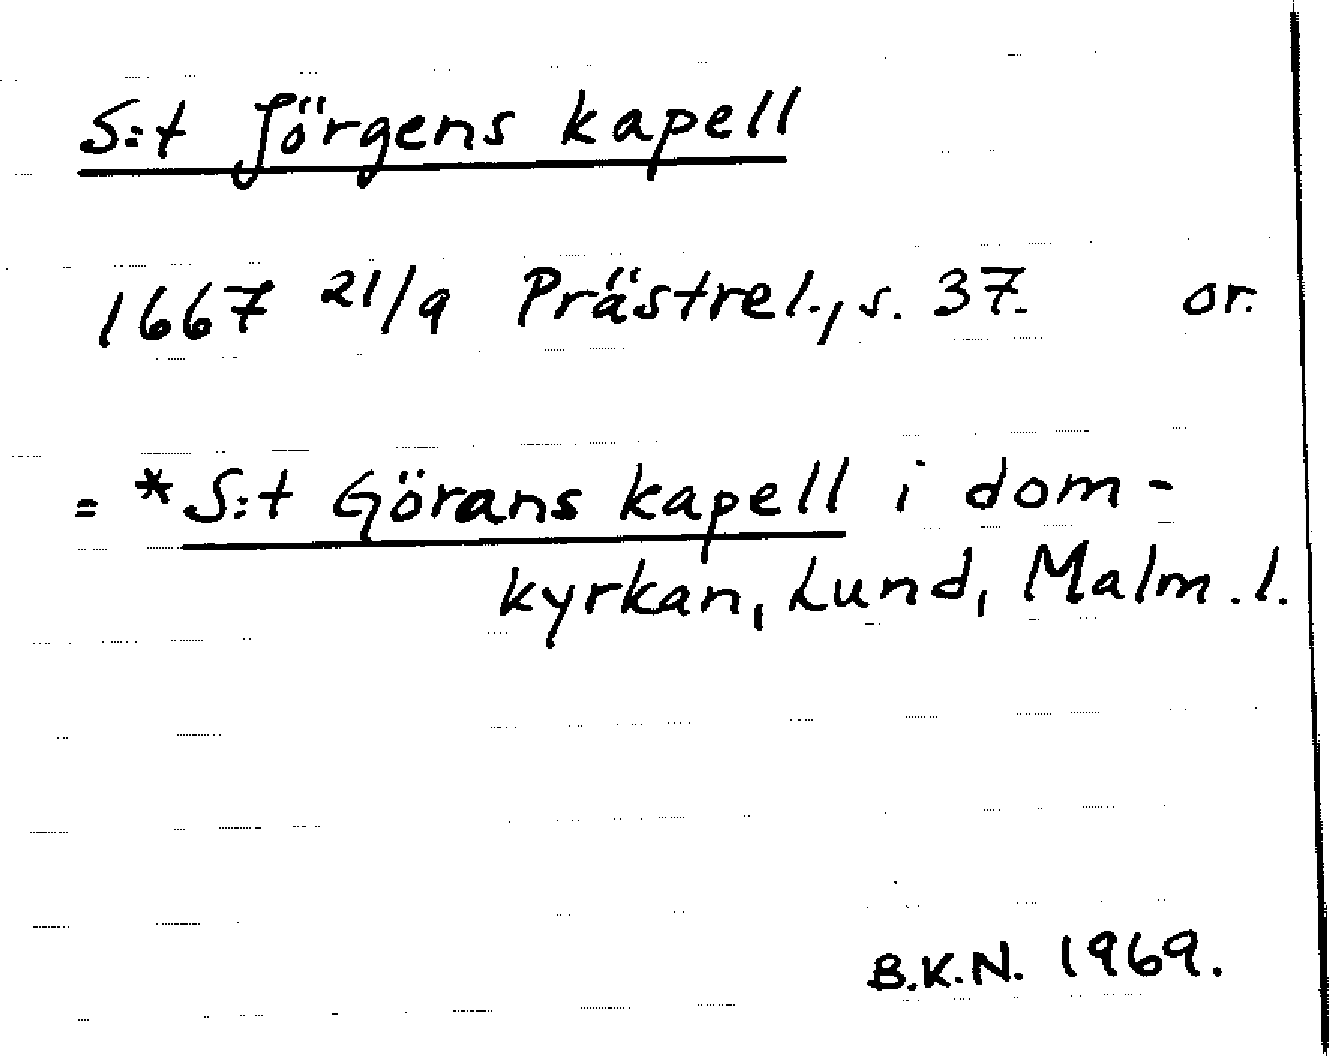 S:t Jörgens kapell
1667 21/9 Prästrel., s. 37. or.
= *S:t Görans kapell i dom-
kyrkan, Lund, Malm. l.
B.K.N. 1969.